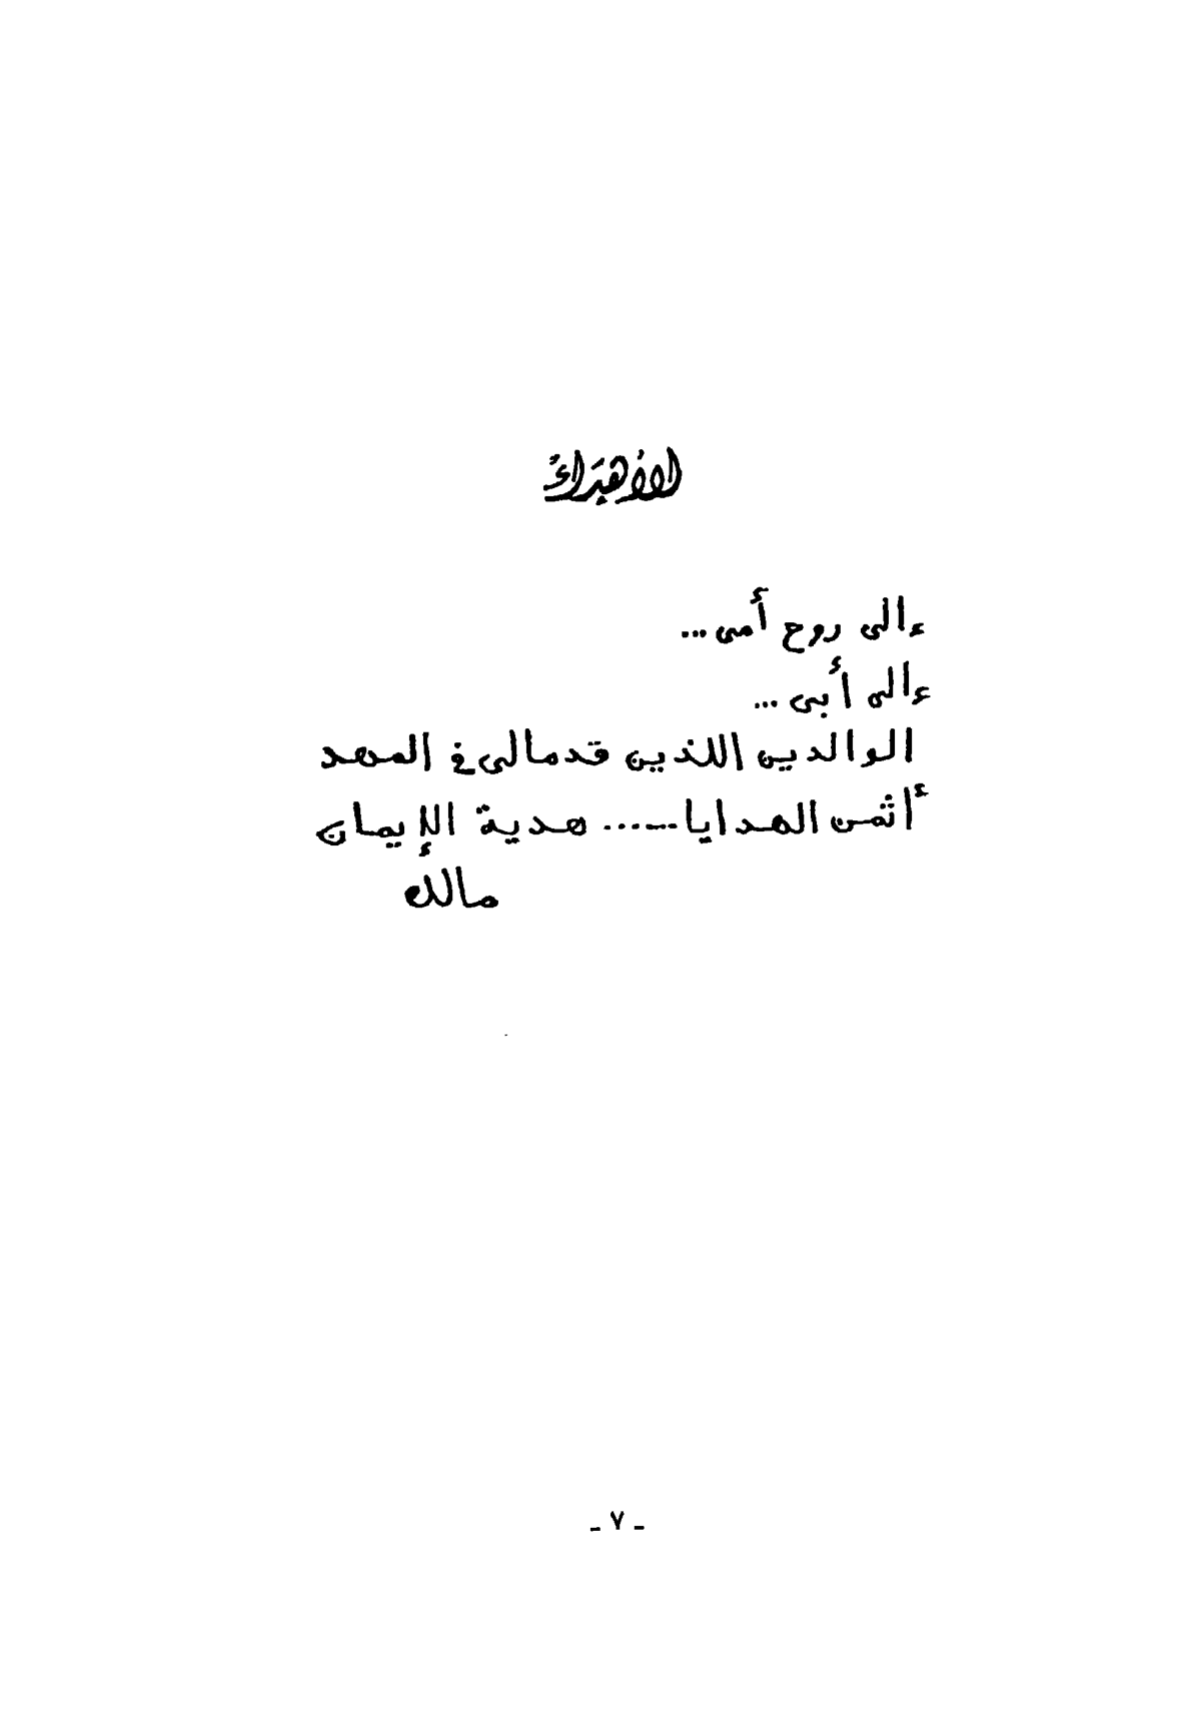 الإهداء
إلى روح أمى ...
إلى أبى ...
الوالدين اللذين قدما لى فى المهد
أثمن الهدايا ...... هدية الإيمان
مالك
- ٧ -